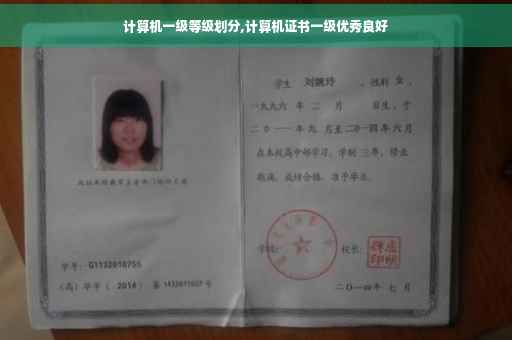 计算机一级等级划分,计算机证书一级优秀良好
学生 刘婉玲 ,性别 女 ,
一九九六 年 二 月 日生，于
二〇一一年九 月至二〇一四年六月
在本校高中部学习，学制 三年，修业
期满，成绩合格，准予毕业。
学号: G1132010755
(高)毕字( 2014 )第 号
学校:
校长:
二〇一四年 七 月